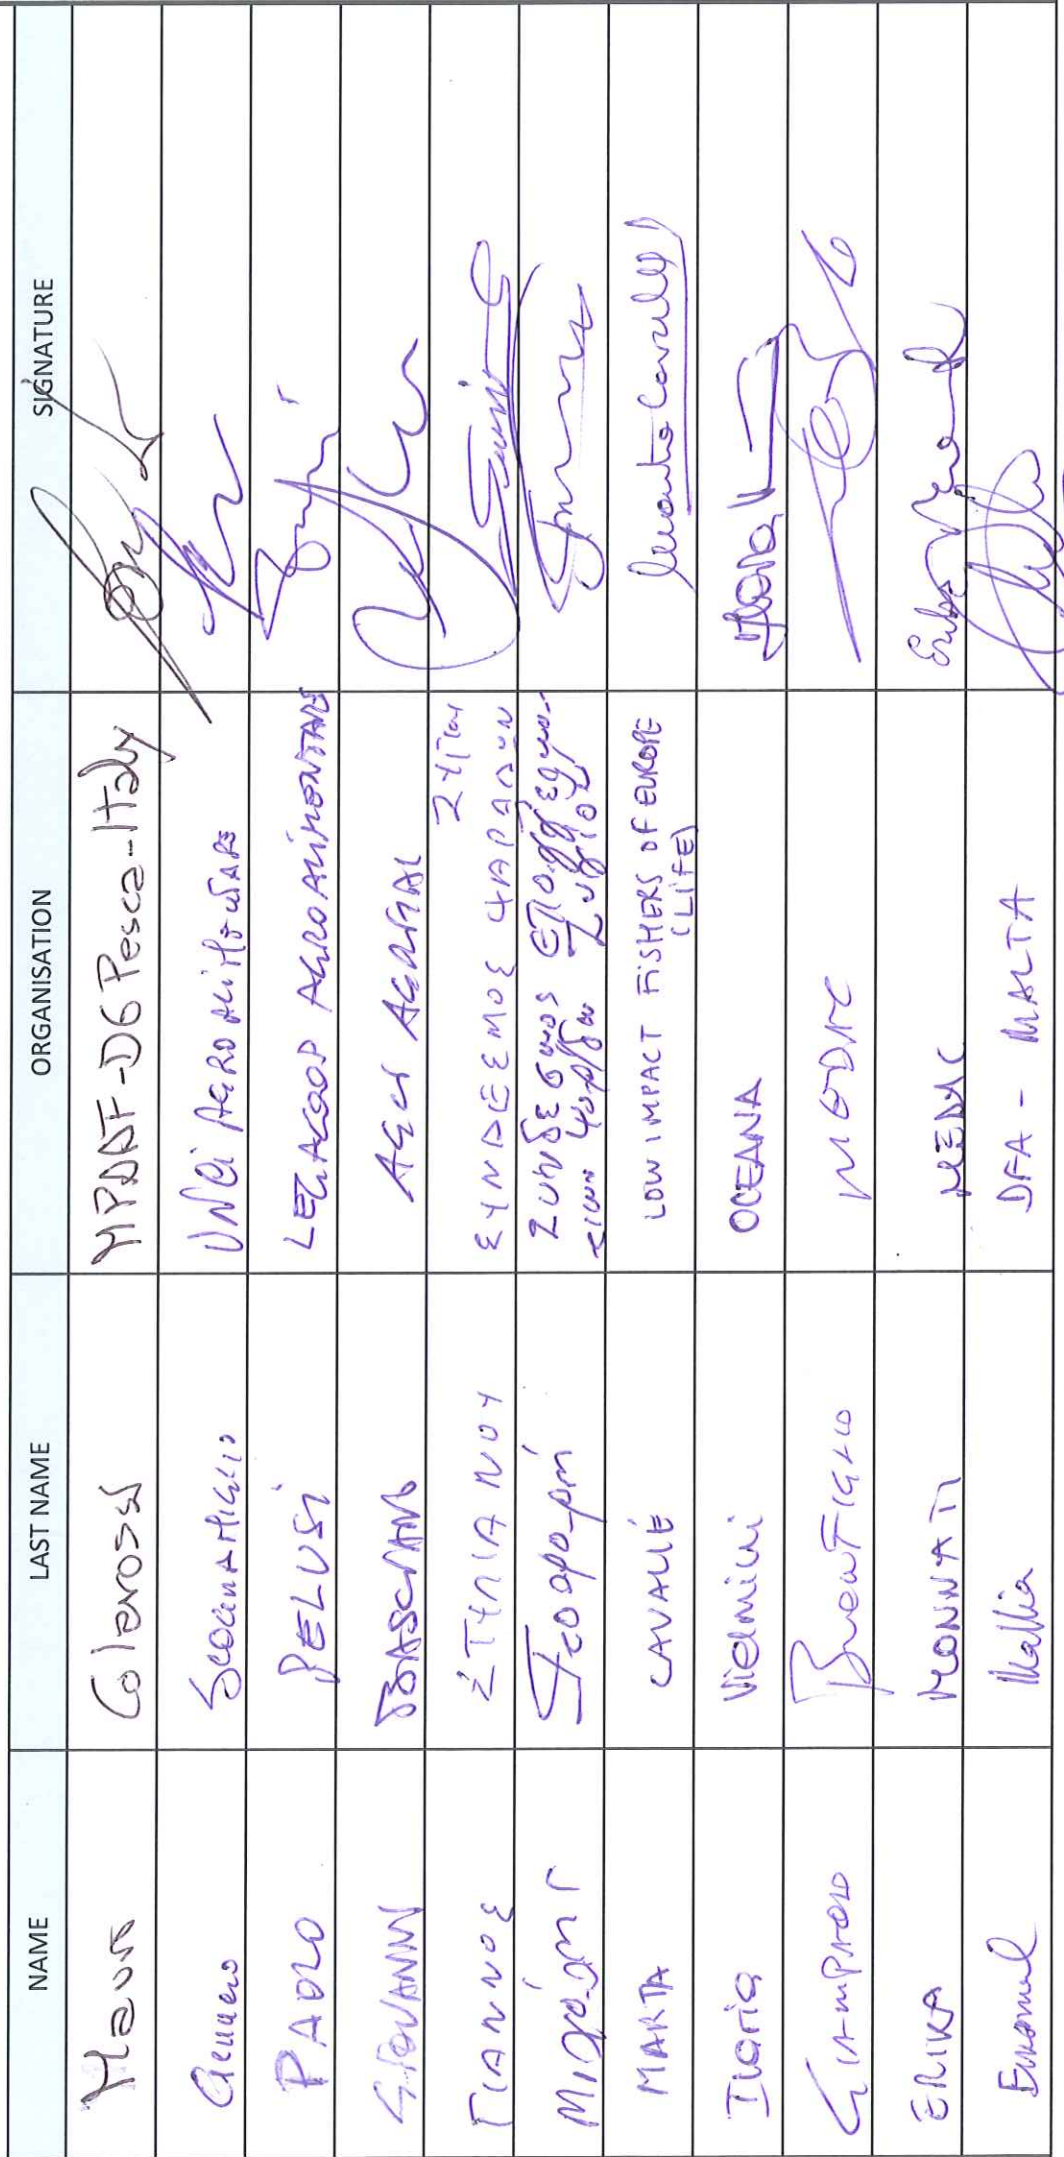 NAME LAST NAME ORGANISATION SIGNATURE
Mauro Colarossi MIPAAF-DG Pesca-Italy
Gennaro Scognamiglio UNCI AGROALIMENTARE
PAOLO PELUSI LEGACOOP AGROALIMENTARE
GIOVANNI BASCIANO AGCI AGRITAL
ΓΙΑΝΝΟΣ ΣΤΥΛΙΑΝΟΥ ΣΥΝΔΕΣΜΟΣ ΨΑΡΑΔΩΝ
Σύνδεσμος
MARTA CAVALLÉ LOW IMPACT FISHERS OF EUROPE
(LIFE) Marta Cavallé
Ilaria Vielmini OCEANA
GIAMPAOLO BUONFIGLIO MEDAC
ERIKA MONNATI MEDAC
Emanuel Mallia DFA - MALTA